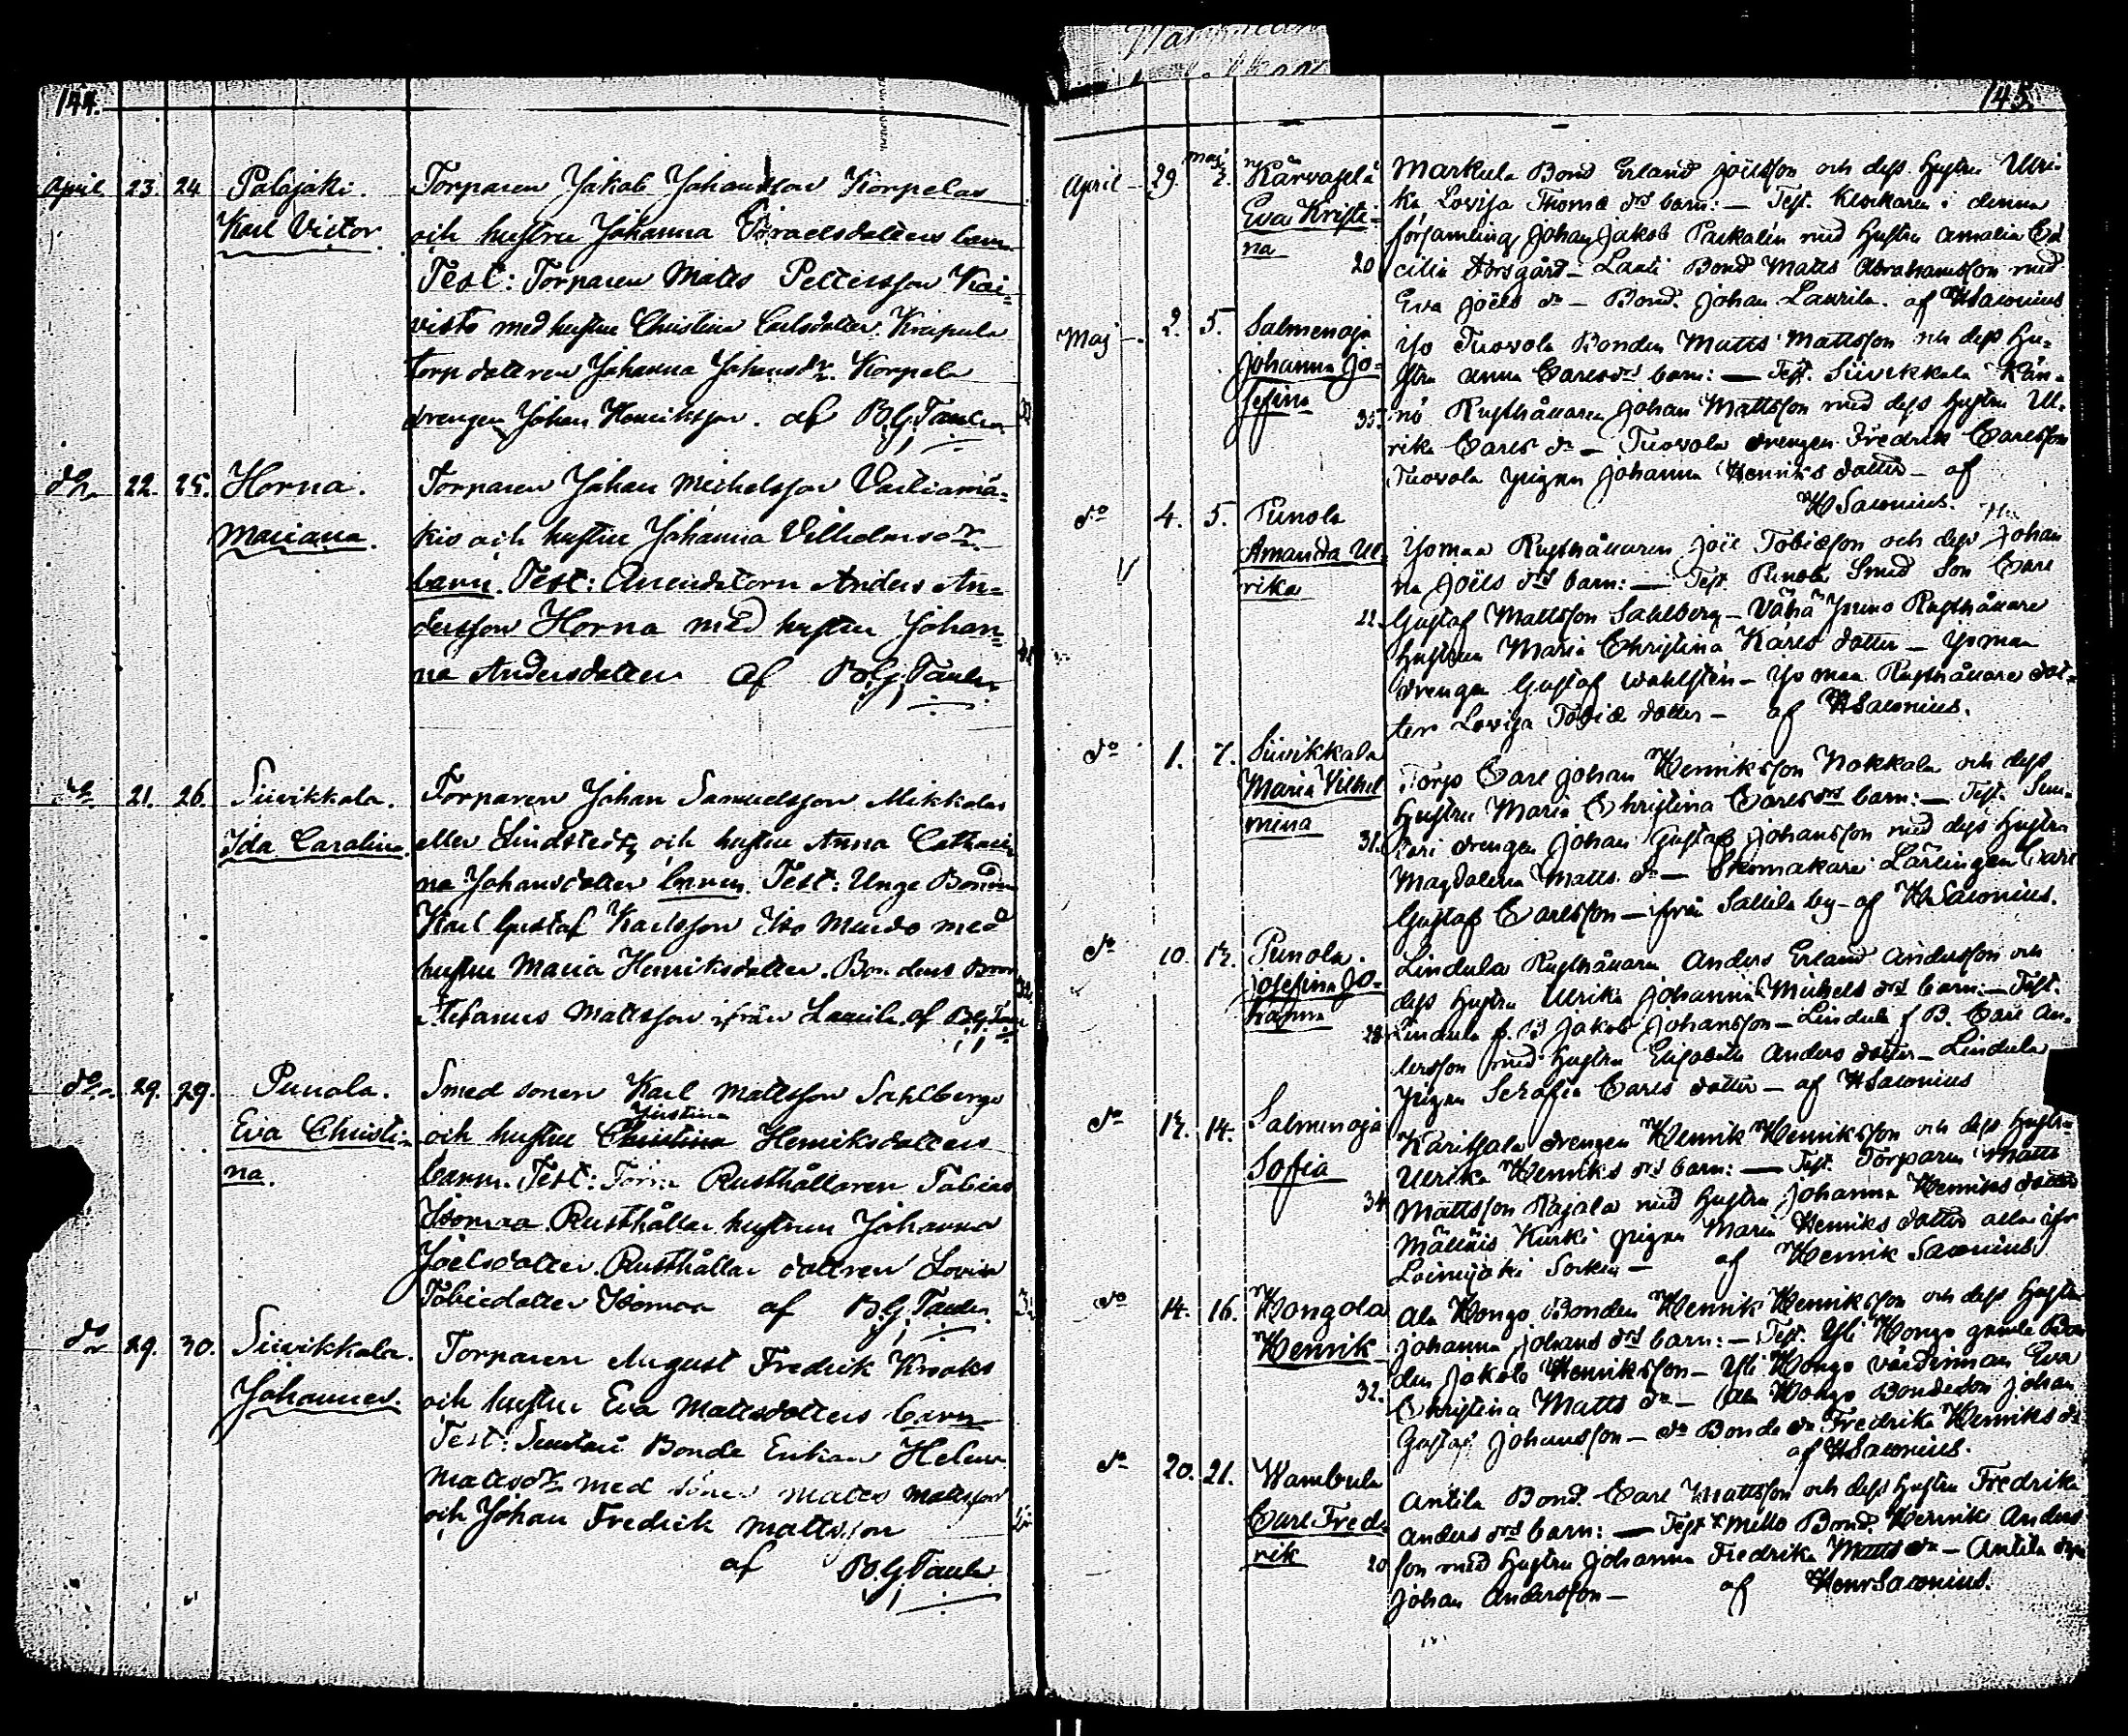 144.
April 23. 24 Palojoki. Torparen Jakob Johansson Korpelas
Karl Victor och hustru Johanna Israelsdotters barn
Test: Torparen Matts Pettersson Koi=
visto med hustru Christina Carlsdotter. Krapula
torp dottren Johanna Johansdr. Korpela
drengen Johan Henriksson. af B.G. Taulér
do 22. 25. Horna. Torparen Johan Michelsson Vartiamä=
Mariana. kis och hustru Johanna Vilhelmsdr
barn. Test: Arendatorn Anders An=
dersson Horna med hustru Johan=
na Andersdotter af B.G. Taulér
do 21. 26. Siivikkala. Torparen Johan Samuelsson Mikkolas
Ida Carolina. eller Lindstedts och hustru Anna Cathari
na Johansdotter barn. Test: Unge Bonden
Karl Gustaf Karlsson Iso med
hustru Maria Henriksdotter. Bondens Bror
Stefanus Mattsson ifrån Laurila. af B.G.
do 29. 29. Punola. Smed sonen Karl Mattsson Sahlbergs
Justina
Eva Christi- och hustru Christina Henriksdotters
na. barn. Test: Rusthållaren Tobias
Isomaa Rusthållar hustrun Johanna
Joelsdotter. Rusthållar dottren Lovisa
Tobiedotter Isomaa af B.G. Taulér
do 29. 30. Siivikkala. Torparen August Fredrik Krooks
Johannes. och hustru Eva Mattsdotters barn
Test: Bonde Enkan Helena
Mattsdr. med söner Matts Mattsson
och Johan Fredrik Mattsson
af B.G. Taulér
145.
April 29. Maj 2. Kärväselä Markula Bond Erland Joëlsson och dess hustru Ulri-
Eva Kristi- ka Lovisa Thomæ drs barn: — Test. Klockaren i denna
na församling Johan Jakob Paskalin med hustru Amalia Cæ
20 cilia Forsgård — Lauti Bond Matts Abrahamsson med
Eva Joëls dr — Bond. Johan Laurila. af HSalonius
Maj 2. 5. Salmenoja Yo Tuovola Bonden Matts Mattsson och dess hu-
Johanna Jo- stru Anna Carlsdrs barn: — Test. Siivikkala Kän-
sefina 35. nö Rusthållaren Johan Mattsson med dess hustru Ul-
rika Carls dr — Tuovola drengen Fredrik Carlsson
Tuovola pigan Johanna Henriks dotter — af
HSalonius.
do 4. 5. Punola Isomaa Rusthållaren Joël Tobiasson och dess Johan
Amanda Ul- na Joëls drs barn: — Test. Punola Smed Son Carl
rika 22. Gustaf Mattsson Sahlberg — Vähä Rusthållare
hustrun Maria Christina Karls dotter — Isomaa
drengen Gustaf Wahlstén — Isomaa Rusthållare dot-
ter Lovisa Tobiæ dotter — af HSalonius.
do 1. 7. Siivikkala Torp Carl Johan Henriksson Nokkala och dess
Maria Vilhel hustru Maria Christina Carlsdrs barn: — Test.
mina 31. drengen Johan Gustaf Johansson med dess hustru
Magdalena Matts dr — Skomakare Lärlingen Carl
Gustaf Carlsson — ifrån Sallila by — af HSalonius.
do 10. 13. Punola. Lindula Rusthållaren Anders Erland Andersson och
Josefina Jo- dess hustru Ulrika Johanna Michels drs barn. — Test.
hanna 28. Lindula f. B. Jakob Johansson — Lindula f B. Carl An-
dersson med hustru Elisabeth Anders dotter — Lindula
pigan Serafia Carls dotter — af HSalonius
do 13. 14. Salmenoja Karitsala drengen Henrik Henriksson och dess hustru
Sofia Ulrika Henriks drs barn: — Test. Torparen Matts
34 Mattsson Rajala med hustru Johanna Henriks dotter
Kurki pigan Maria Henriks dotter alla ifr
Loimijoki Socken — af Henrik Salonius
do 14. 16. Hongola Ala Hongo Bonden Henrik Henriksson och dess hustru
Henrik Johanna Johans drs barn: — Test. Yli Hongo gamla Bon
32. den Jakob Henriksson — Yli Hongo värdinnan Eva
Christina Matts dr — Ala Hongo Bondeson Johan
Gustaf Johansson — do Bonde dr Fredrika Henriks dr
af HSalonius.
do 20. 21. Wambula Antila Bond. Carl Mattsson och dess hustru Fredrika
Carl Fred- Anders drs barn: — Test. Mello Bond. Henrik Anders
rik 20 son med hustru Johanna Fredrika Matts dr — Antila
Johan Andersson — af HenrSalonius.